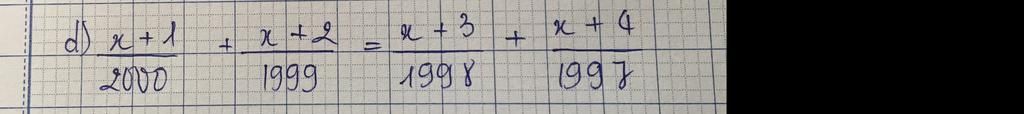 d) \frac{x+1}{2000} + \frac{x+2}{1999} = \frac{x+3}{1998} + \frac{x+4}{1997}